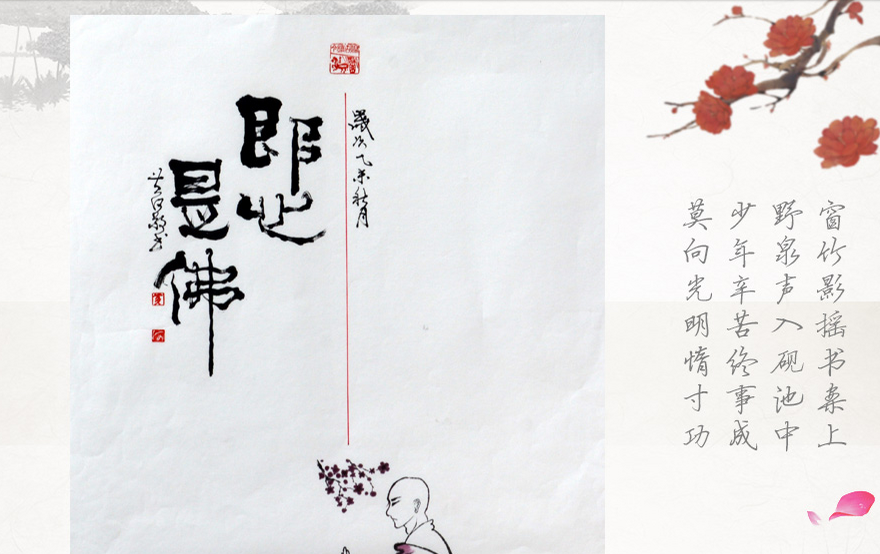 窗竹影摇书桌上
野泉声入砚池中
少年辛苦终事成
莫向光明惰寸功
歲次乙未秋月
即心
是佛